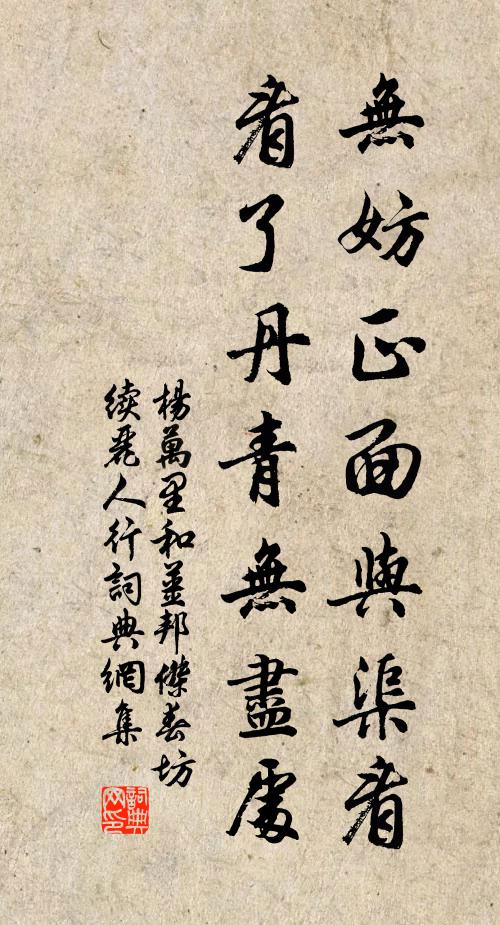 無妨正面與渠看
看了丹青無盡處
楊萬里和姜邦傑春坊
續麗人行詞典網集
詞典网印